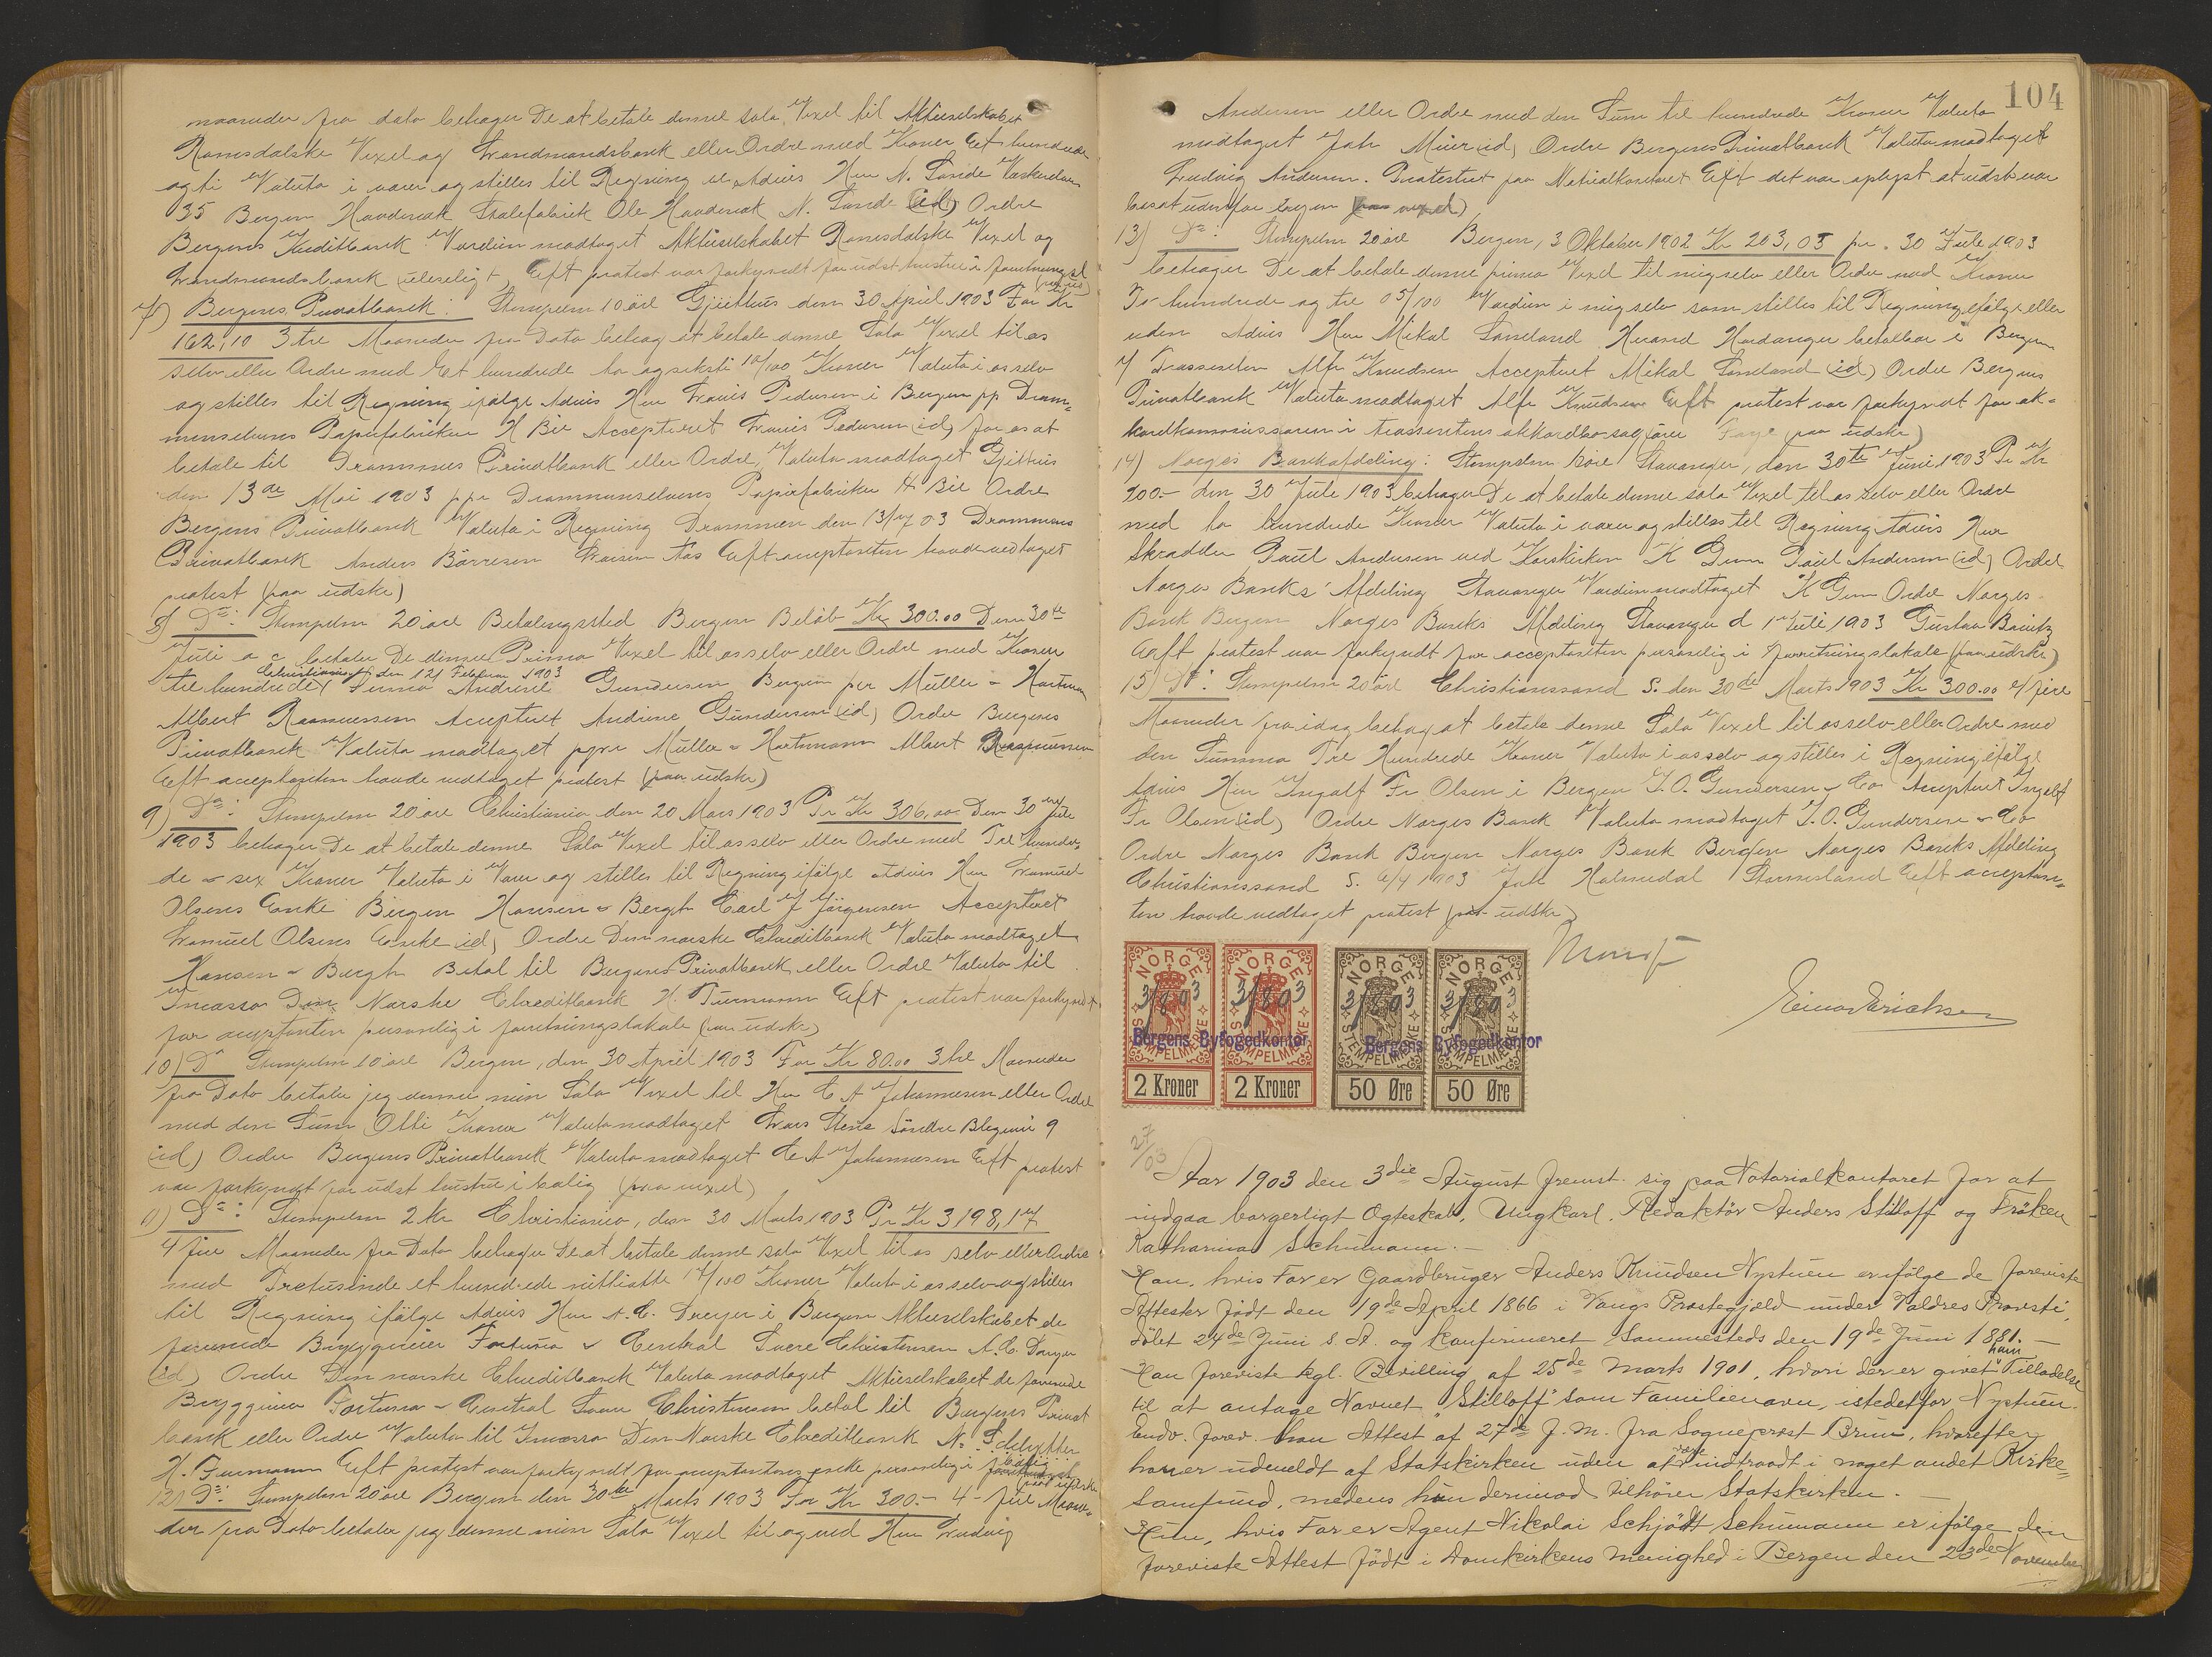 maaneder fra dato behager De at betale denne sola Vexel til Aktieselskabet
Romsdalske Vexel og Landmandsbank eller Ordre med Kroner Et hundrede
og ti Valuta i varer og stilles til Regning Advis Herr N. Sande
35 Bergen Havdenak Skalefabrik Ole Havdenak N. Sande (id) Ordre
Bergens Kreditbank Værdien modtaget Aktieselskabet Romsdalske Vexel og
Landmandsbank (uleselig) Eft protest var forkyndt for udst hustru i
7) Bergens Privatbank: Stempelm 10 öre Gjetthus den 30 April 1903 For Kr
162,10 3 tre Maaneder fra Dato behag at betale denne Sola Vexel til os
selv eller Ordre med Et hundrede to og seksti 10/100 Kroner Valuta i os selv
og stilles til Regning ifølge Advis Herr Pedersen i Bergen pp Dram-
menselvens Papirfabriker H Bie Accepteret Pedersen (id) for os at
betale til Drammens Privatbank eller Ordre, Valuta modtaget Gjetthus
den 13de Mai 1903 ppr Drammenselvens Papirfabriker H Bie Ordre
Bergens Privatbank Valuta i Regning Drammen den 13/7 03 Drammens
Privatbank Anders Börresen Eft acceptanten havde vedtaget
protest (paa udskr)
8) Do: Stempelm 20 öre Betalingssted Bergen Beløb Kr 300.00 Den 30te
Juli a c betaler De denne Prima Vexel til os selv eller Ordre med Kroner
Christiania den 121 Februar 1903
tre hundrede Andrine Gundersen Bergen per Müller & Hartmann
Albert Rasmussen Accepteret Andrine Gundersen (id) Ordre Bergens
Privatbank Valuta modtaget ppr Müller & Hartmann Albert Rasmussen
Eft acceptanten havde vedtaget protest (paa udskr)
9) Do: Stempelm 20 öre Christiania den 20 Mars 1903 Pr Kr 306,00 Den 30 Juli
1903 behager De at betale denne Sola Vexel til os selv eller Ordre med Tre hundre-
de & sex Kroner Valuta i Varer og stilles til Regning ifølge Advis Herr Samuel
Olsens Enke Bergen Hansen & Bergh Carl J Jörgensen Accepteret
Samuel Olsens Enke (id) Ordre Den norske Creditbank Valuta modtaget
Hansen & Bergh Betal til Bergens Privatbank eller Ordre Valuta til
Incasso Den Norske Creditbank H. Furmann Eft protest var forkyndt
for acceptanten personlig i forretningslokale (paa udskr)
10) Do Stempelm 10 öre Bergen, den 30 April 1903 For Kr 80.00 3 tre Maaneder
fra Dato betaler jeg denne min Sola Vexel til Herr C A Johannesen eller Ordre
med den Sum Otti Kroner Valuta modtaget Lars Stene Söndre Blegevei 9
(id) Ordre Bergens Privatbank Valuta modtaget C A Johannesen Eft protest
var forkyndt for udst hustru i bolig (paa vexel)
11) Do: Stempelm 2 kr Christiania, den 30 Marts 1903 Pr Kr 3198,17
4 fire Maaneder fra Dato behager De at betale denne sola Vexel til os selv eller Ordre
med Tretusinde et hundrede nittiotte 17/100 Kroner Valuta i os selv og stilles
til Regning ifølge Advis Herr A. C. Dreyer i Bergen Aktieselskabet de
forenede Bryggerier Fortuna & Central Sverre Christensen A. C. Dreyer
(id) Ordre Den norske Creditbank Valuta modtaget Aktieselskabet de forenede
Bryggerier Fortuna & Central Sverre Christensen betal til Bergens Privat
bank eller Ordre Valuta til Incasso Den Norske Creditbank N.
H. Furmann Eft protest var forkyndt for acceptantens enke personlig i bolig
12) Do: Stempelm 20 öre Bergen den 30te Marts 1903 For Kr 300.- 4- fire Maane-
der fra Dato betaler jeg denne min Sola Vexel til og ved Herr Ludvig
104
Andersen eller Ordre med den Sum tre hundrede Kroner Valuta
modtaget Joh Müir (id) Ordre Bergens Privatbank Valuta modtaget
Ludvig Andersen. Protesteret paa Notrialkontoret Eft det var oplyst at udst var
bosat udenfor byen (paa vexel)
13) Do: Stempelm 20 öre Bergen, 3 Oktober 1902 Kr 203,05 pr. 30 Juli 1903
behager De at betale denne prima Vexel til mig selv eller Ordre med Kroner
To hundrede og tre 05/100 Værdien i mig selv som stilles til Regning ifølge eller
uden Advis Herr Mikal Sandand Hardanger betalbar i Bergen
Trassenten Alfr Knudsen Accepteret Mikal (id) Ordre Bergens
Privatbank Valuta modtaget Alfr Knudsen Eft protest var forkyndt for ak-
kordkommissæren i trassentens akkordbo sagfører Faye (paa udskr)
14) Norges Bankafdeling: Stempelm öre Stavanger, den 30te Juni 1903 Pr Kr
200.- den 30 Juli 1903 behager De at betale denne sola Vexel til os selv eller Ordre
med to hundrede Kroner Valuta i varer og stilles til Regning Advis Herr
Skrædder Paul Andersen ved Korskirken K Paul Andersen (id) Ordre
Norges Banks Afdeling Stavanger Værdien modtaget K Ordre Norges
Bank Bergen Norges Banks Afdeling Stavanger d 1 Juli 1903 Gustav
Eeft protest var forkyndt for acceptanten personlig i forretningslokale (paa udskr)
15) Do: Stempelm 20 öre Christianssand S. den 30de Marts 1903 Kr 300.00 4/fire
Maaneder fra idag behag at betale denne Sola Vexel til os selv eller Ordre med
den Summa Tre Hundrede Kroner Valuta i os selv og stilles i Regning ifølge
Advis Herr Ingolf Fr Olsen i Bergen J. O. Gundersen & Co Accepteret Ingolf
Fr Olsen (id) Ordre Norges Bank Valuta modtaget J. O. Gundersen & Co
Ordre Norges Bank Bergen Norges Bank Bergen Norges Banks Afdeling
Christianssand S. 6/4 1903 Joh Holmedal Eft acceptan-
ten havde vedtaget protest (paa udskr)
Einar Erichsen
NORGE NORGE NORGE NORGE
3/8 03 3/8 03 3/8 03 3/8 03
STEMPELMÆRKE STEMPELMÆRKE STEMPELMÆRKE STEMPELMÆRKE
Bergens Byfogedkontor Bergens Byfogedkontor
2 Kroner 2 Kroner 50 Øre 50 Øre
27/03
Aar 1903 den 3die August fremst. sig paa Notorialkontoret for at
indgaa borgerligt Ægteskab, Ungkarl, Redaktör Anders Stilloff og Fröken
Katharina Schumann.-
Han, hvis Far er Gaardbruger Anders Knudsen Nystuen er ifølge de foreviste
Attester født den 19de April 1866 i Vangs Præstegjæld under Valdres Provsti,
döbt 24de Juni s. A. og konfirmeret sammesteds den 19de Juni 1881.-
Han foreviste kgl. Bevilling af 25de Marts 1901, hvori der er givet ham Tilladelse
til at antage Navnet "Stilloff" som Familienavn, istedetfor Nystuen.
Endv. forev. han Attest af 27de f. M. fra Sogneprest Bruun, hvorefter
han er udmeldt af Statskirken uden at være indtraadt i noget andet Kirke-
samfund, medens hun derimod tilhører Statskirken.-
Hun, hvis Far er Agent Nikolai Schjødt Schumann er ifølge den
foreviste Attest født i Domkirkens Menighed i Bergen den 23de November